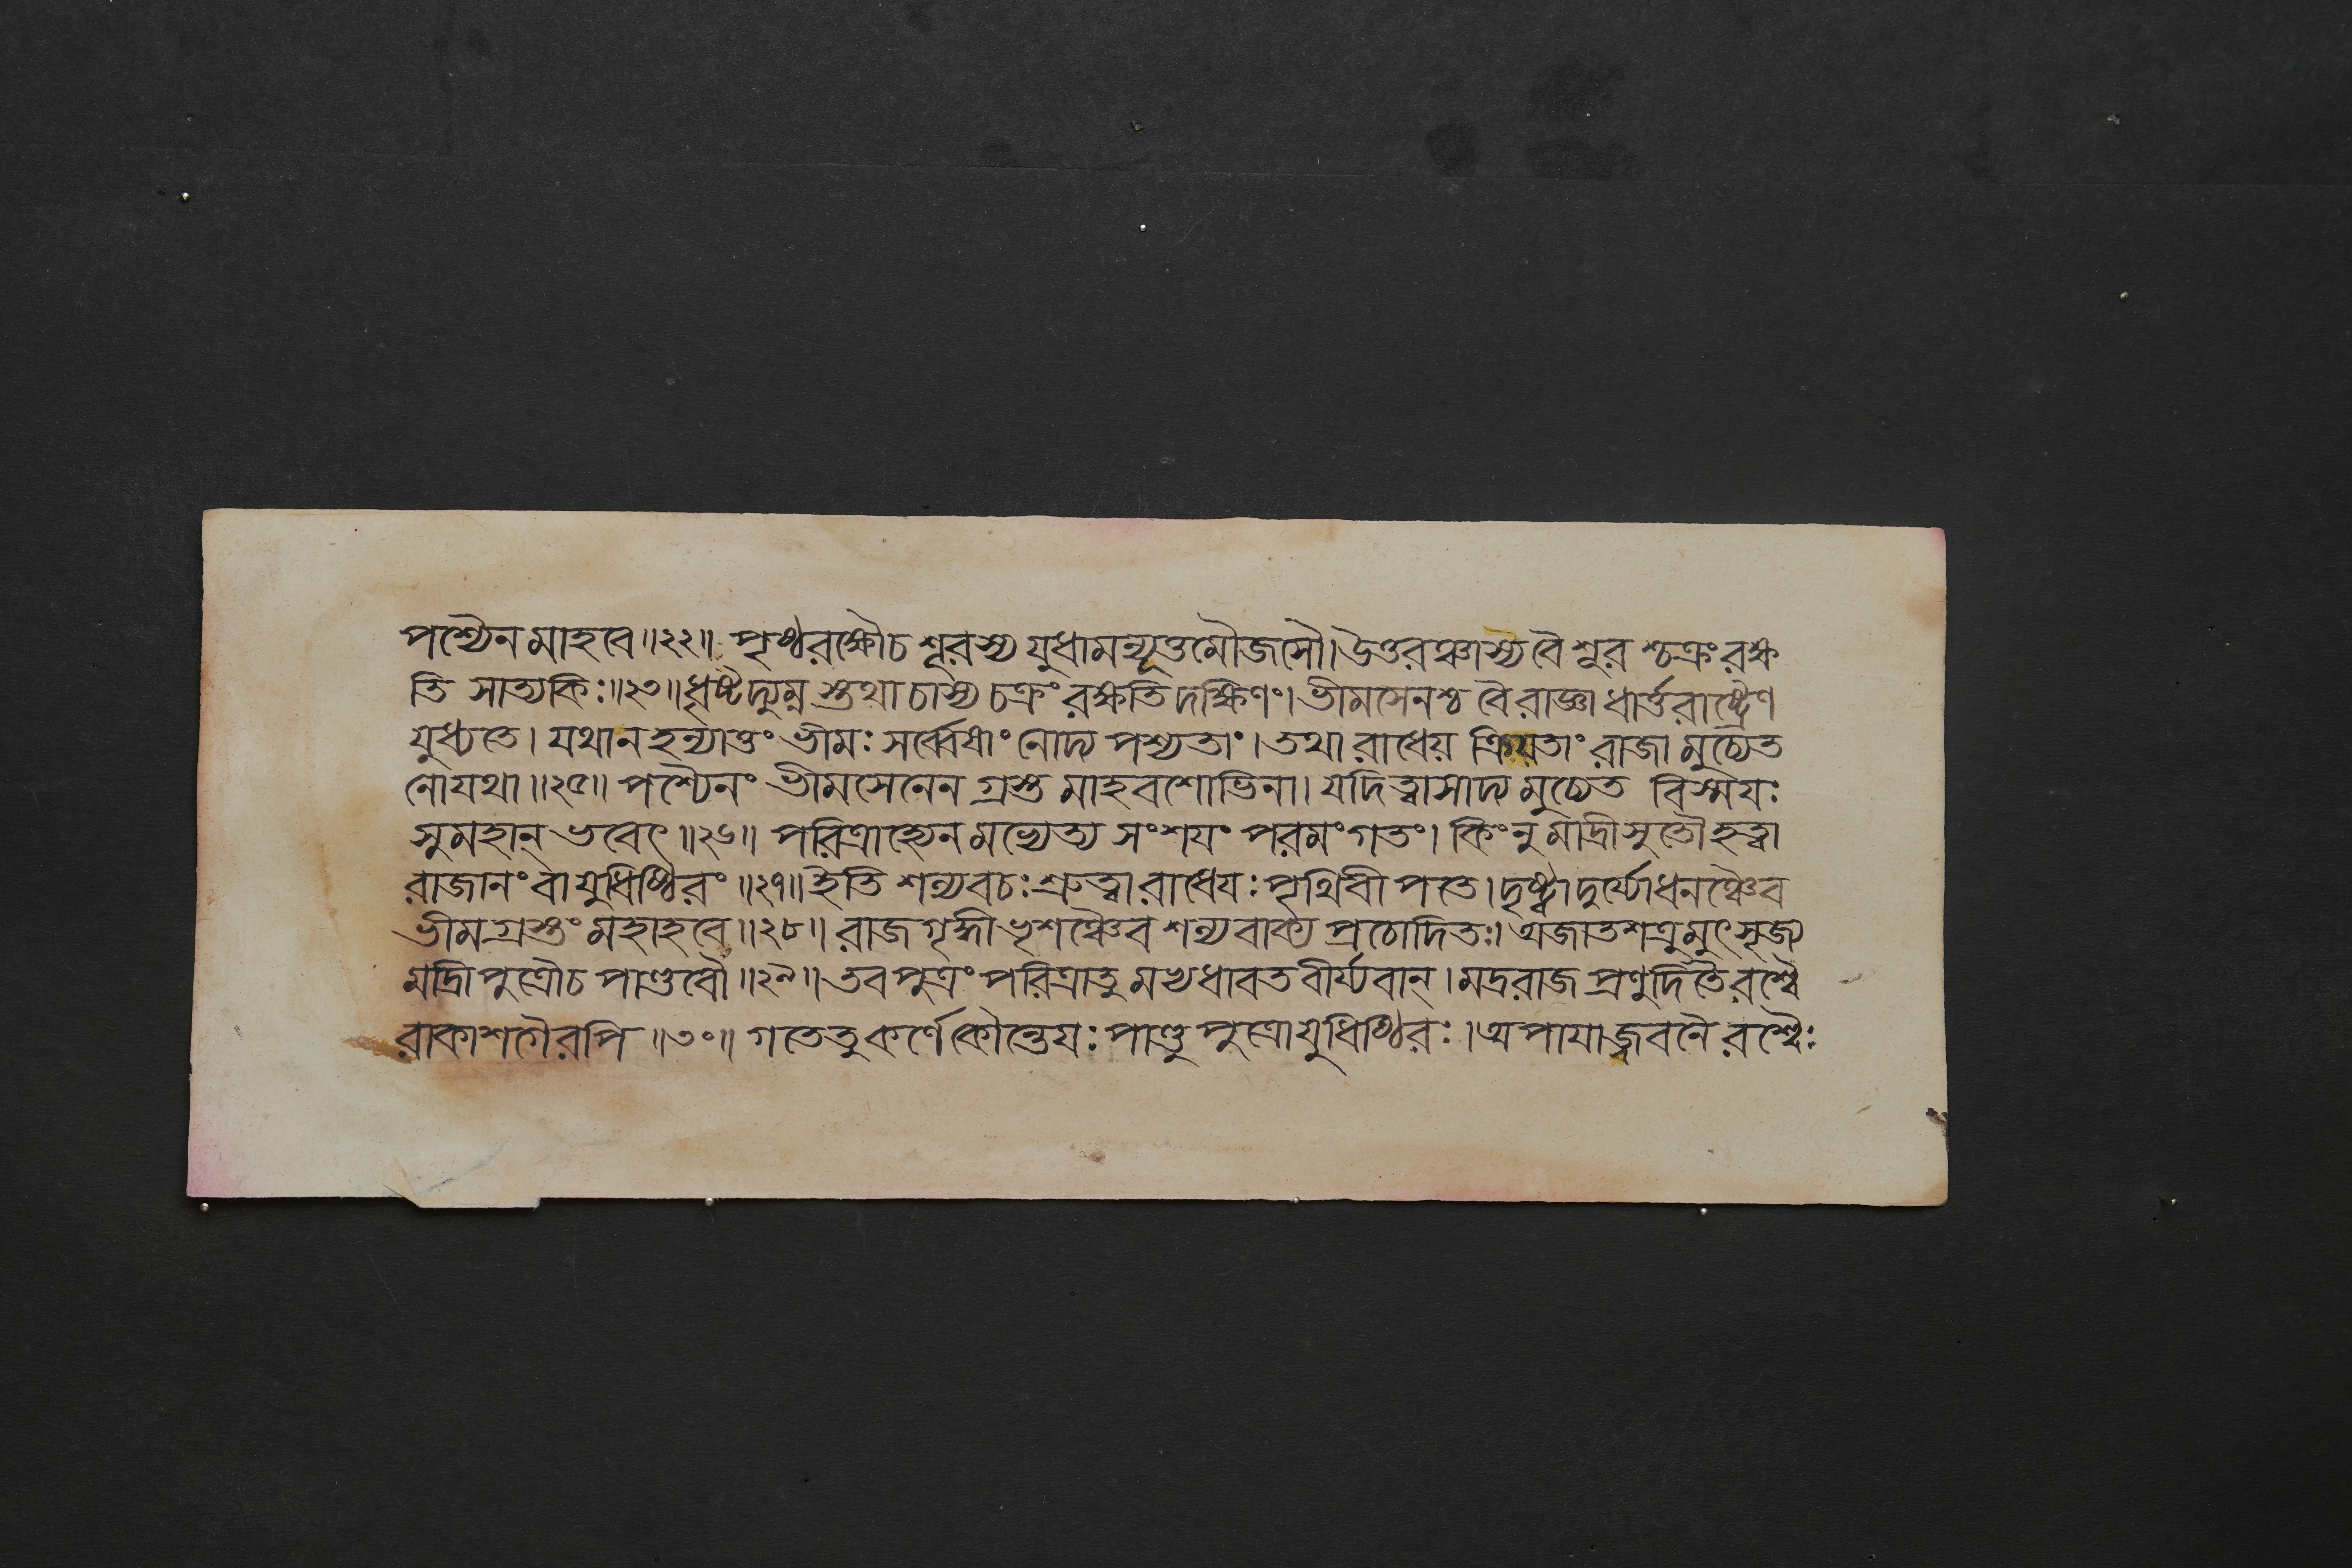 পশ্যৈন মাহবে॥২২॥ পৃষ্ঠরক্ষৌচ শূরস্য যুধামন্যূত্তমৌজসৌ।উত্তরঞ্চাস্যবৈ শূর শ্চক্রং রক্ষ
তি সাত্যকিঃ॥২৩॥ধৃষ্টদ্যুম্ন স্তথা চাস্য চক্রং রক্ষতি দক্ষিণং।ভীমসেনশ্চ বৈ রাজ্ঞা ধার্ত্তরাষ্ট্রেণ
যুধ্যতে। যথা ন হন্যাত্তং ভীমঃ সর্ব্বেষাং নোদ্য পশ্যতাং।তথা রাধেয় ক্রিয়তাং রাজা মুচ্যেত
নো যথা॥২৫॥ পশ্যৈনং ভীমসেনেন গ্রস্ত মাহবশোভিনা। যদি ত্বাসাদ্য মুচ্যেত বিস্ময়ঃ
সুমহান্ ভবেৎ॥২৬॥ পরিত্রাহ্যেন মভ্যেত্য সংশয়ং পরমং গতং। কিং নু মাদ্রীসুতৌ হত্বা
রাজানং বা যুধিষ্ঠিরং॥২৭॥ইতি শল্যবচঃ শ্রুত্বা রাধেয়ঃ পৃথিবী পতে।দৃষ্ট্বা দুর্য্যোধনঞ্চৈব
ভীমগ্রস্তং মহাহবে॥২৮॥ রাজগৃদ্ধী ভৃশঞ্চৈব শল্যবাক্য প্রচোদিতঃ।অজাতশত্রুমুৎসৃজ্য
মদ্রি পুত্রৌচ পাণ্ডবৌ॥২৯॥তব পুত্রং পরিত্রাতু মভ্যধাবত বীর্য্যবান্।মদ্ররাজ প্রণুদিতৈ রশ্বৈ
রাকাশগৈরপি॥৩০॥ গতেতু কর্ণে কৌন্তেয়ঃ পাণ্ডু পুত্রো যুধিষ্ঠিরঃ।অপাযাজ্জবনৈ রশ্বৈঃ